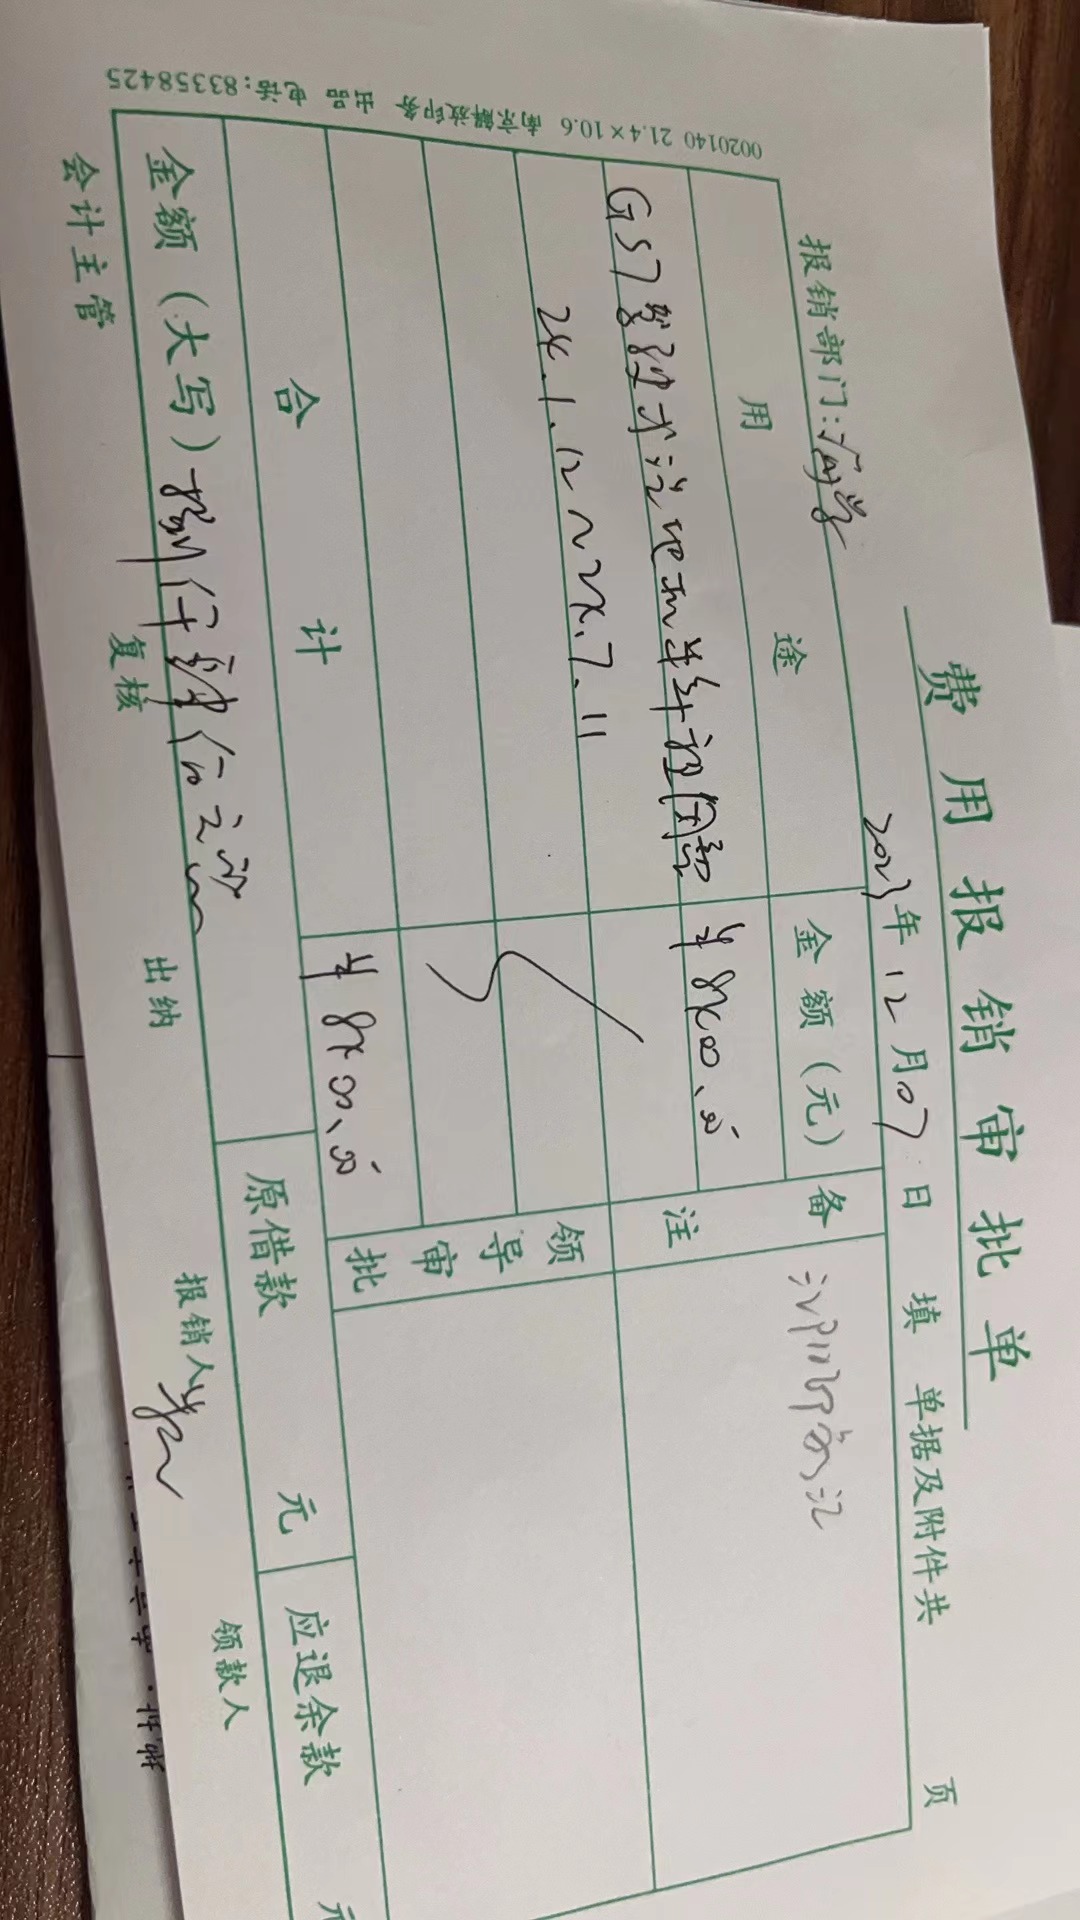 费用报销审批单
报销部门: 2023年12月07日 填 单据及附件共 页
用途 金额(元) 备注
GS7 半年 ¥8400.00
24.1.12~24.7.11
领导审批
合计 ¥8400.00
金额(大写)捌仟肆佰元 原借款 元 应退余款 元
会计主管 复核 出纳 报销人 领款人
0020140 21.4×10.6 南京解放印务 出品 电话:83358425